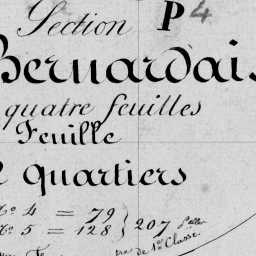 Section P4
Bernardais
quatre feuilles
Feuille
quartiers
N.° 4 = 79
N.° 5 = 128 } 207 P.elles
de 1.re Classe.